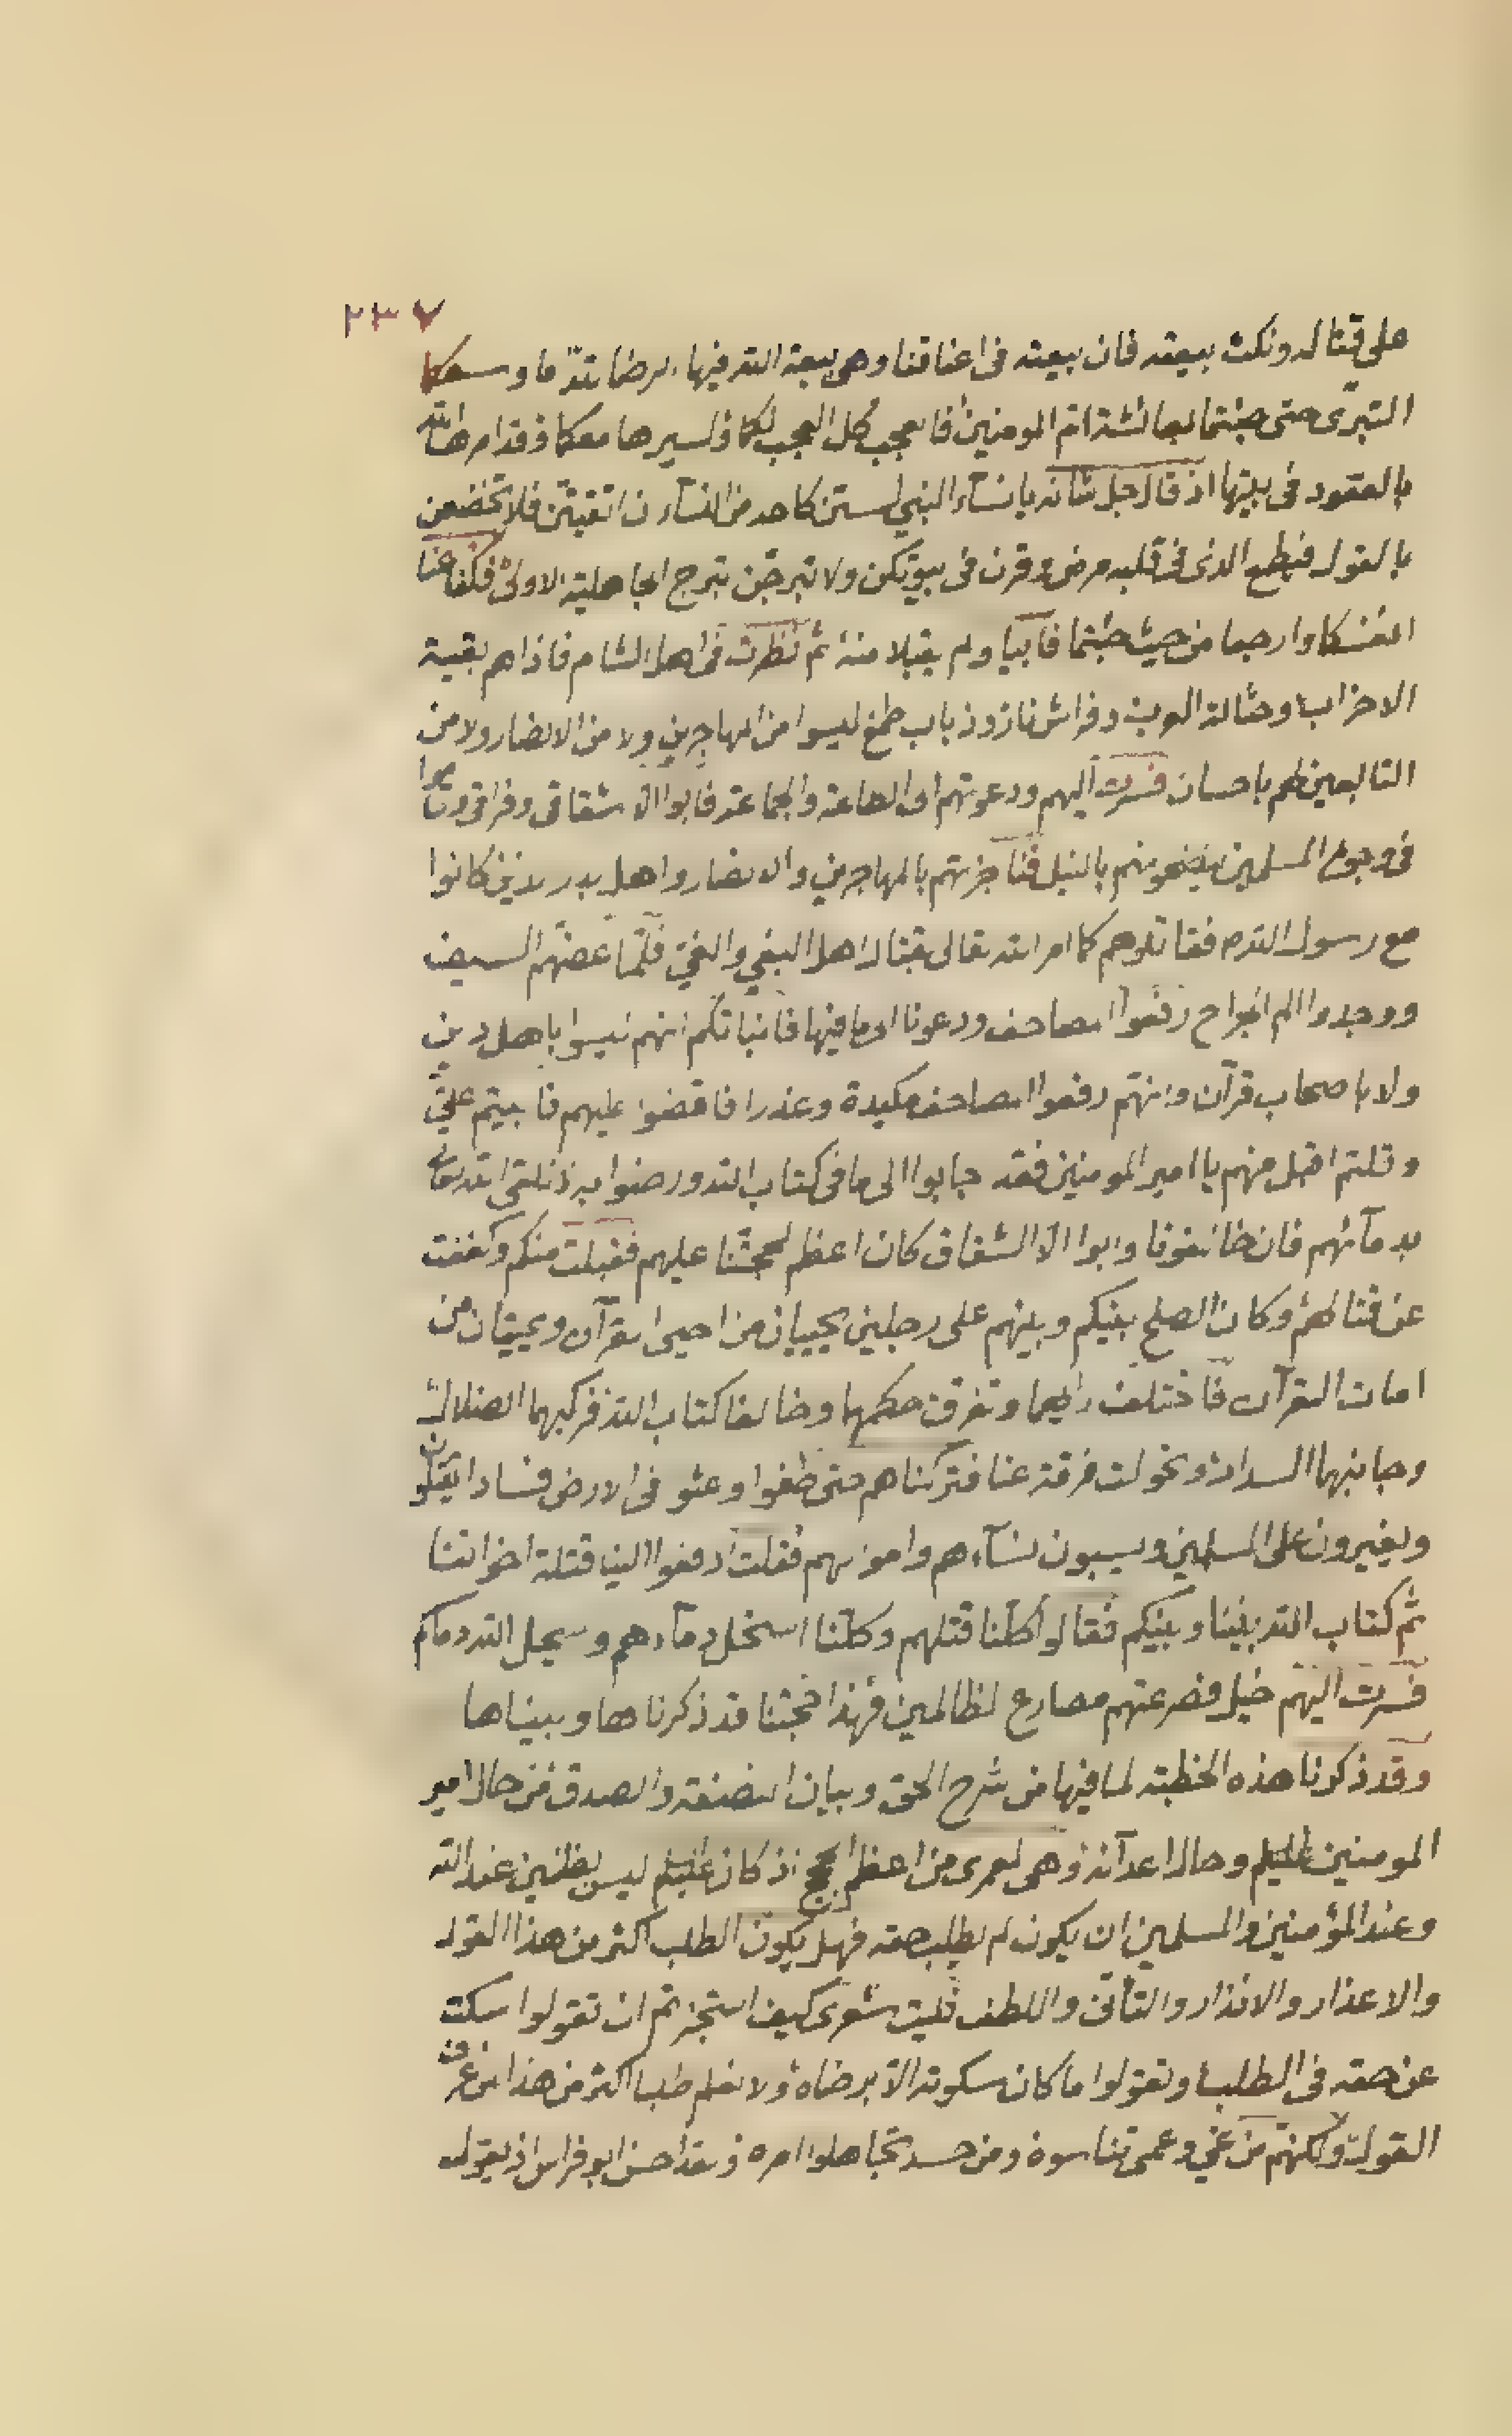 ٢٣٧
على قتاله ونكث بيعته فان بيعته فى اعناقنا وهى بيعة الله فيها الرضا تقدما وسعكما
التبرّى حتى جئتما بعائشة ام المومنين فاعجب كل العجب لكما ولسيرها معكما وقد امرها الله
بالعقود فى بيتها اذ قال جل شانه يا نسآء النبي لستن كاحد من النسآء ن اتقيتن فلا تخضعن
بالقول فيطمع الذى فى قلبه مرض وقرن فى بيوتكن ولا تبرجن تبرج الجاهلية الاولى فكفا عنا
انفسكما وارجعا من حيث جئتما فابيا ولم يقبلا منه ثم نظرت فى اهل الشام فاذا هم بقية
الاحزاب وحثالة العرب وفراش نار وذباب طمع ليسوا من المهاجرين ولا من الانصار ولا من
التابعين لهم باحسان فسرت اليهم ودعوتهم الى الطاعة والجماعة فابوا الا شقاقى وفراقى وقاموا
فى وجوه المسلمين ينضحونهم بالنبل فناجزتهم بالمهاجرين والانصار واهل بدر الذين كانوا
مع رسول الله ص فقاتلوهم كما امر الله تعالى بقتال اهل البغي والغي فلما عضهم السيف
ووجدوا الم الجراح رفعوا المصاحف ودعونا الى ما فيها فانباتكم انهم ليسوا باهل دين
ولا باصحاب قرآن وانهم رفعوا المصاحف مكيدة وغدرا فاقضوا عليهم فابيتم علي
وقلتم اقبل منهم يا امير المومنين فقد جابوا الى ما فى كتاب الله ورضوا به ذنلقى الله تعالى
بدمآئهم فان خالفونا وابوا الا الشقاق كان اعظم لحجتنا عليهم فقبلت منكم وكففت
عن قتالهم وكان الصلح بينكم وبينهم على رجلين يحييان من احيى القرآن ويميتان من
امات القرآن فاختلف رايهما وتفرق حكمهما وخالفا كتاب الله فركبهما الضلالة
وجانبهما السداد وتحولت فرقة عنا فتركناهم حتى طغوا وعثو فى الارض فسادا يقتلون
ويغيرون على المسلمين ويسبون نسآءهم واموالهم فقلت ادفعوا الينا قتلة اخواننا
ثم كتاب الله بيننا وبينكم فقالوا كلنا قتلهم وكلنا استحل دمآءهم وسيحل الله دمآكم
فسرت اليهم خيلى فصرعتهم مصارع لظالمين فهذا حجتنا قد ذكرناها وبيناها
وقد ذكرنا هذه الخطبة لما فيها من شرح الحق وبيان النصفة والصدق من حال امير
المومنين عليه السلم وحال اعدآئه وهى لعمرى من اعظم الحجج اذ كان عليه السلم ليس بظنين عند الله
وعند المؤمنين والمسلمين ان يكون لم يطلب حقه فهل يكون الطلب اكثر من هذا القول
والاعذار والانذار والتانى واللطف فليت شعرى كيف استجزتم ان تقولوا سكت
عن حقه فى الطلب وتقولوا ما كان سكوته الا برضاه ولا نعلم طلبا اكثر من هذا لمن عرف
القول ولكنهم من غي وعمى تناسوه ومن حسد تجاهلوا امره ولقد احسن ابو فراس اذ يقول